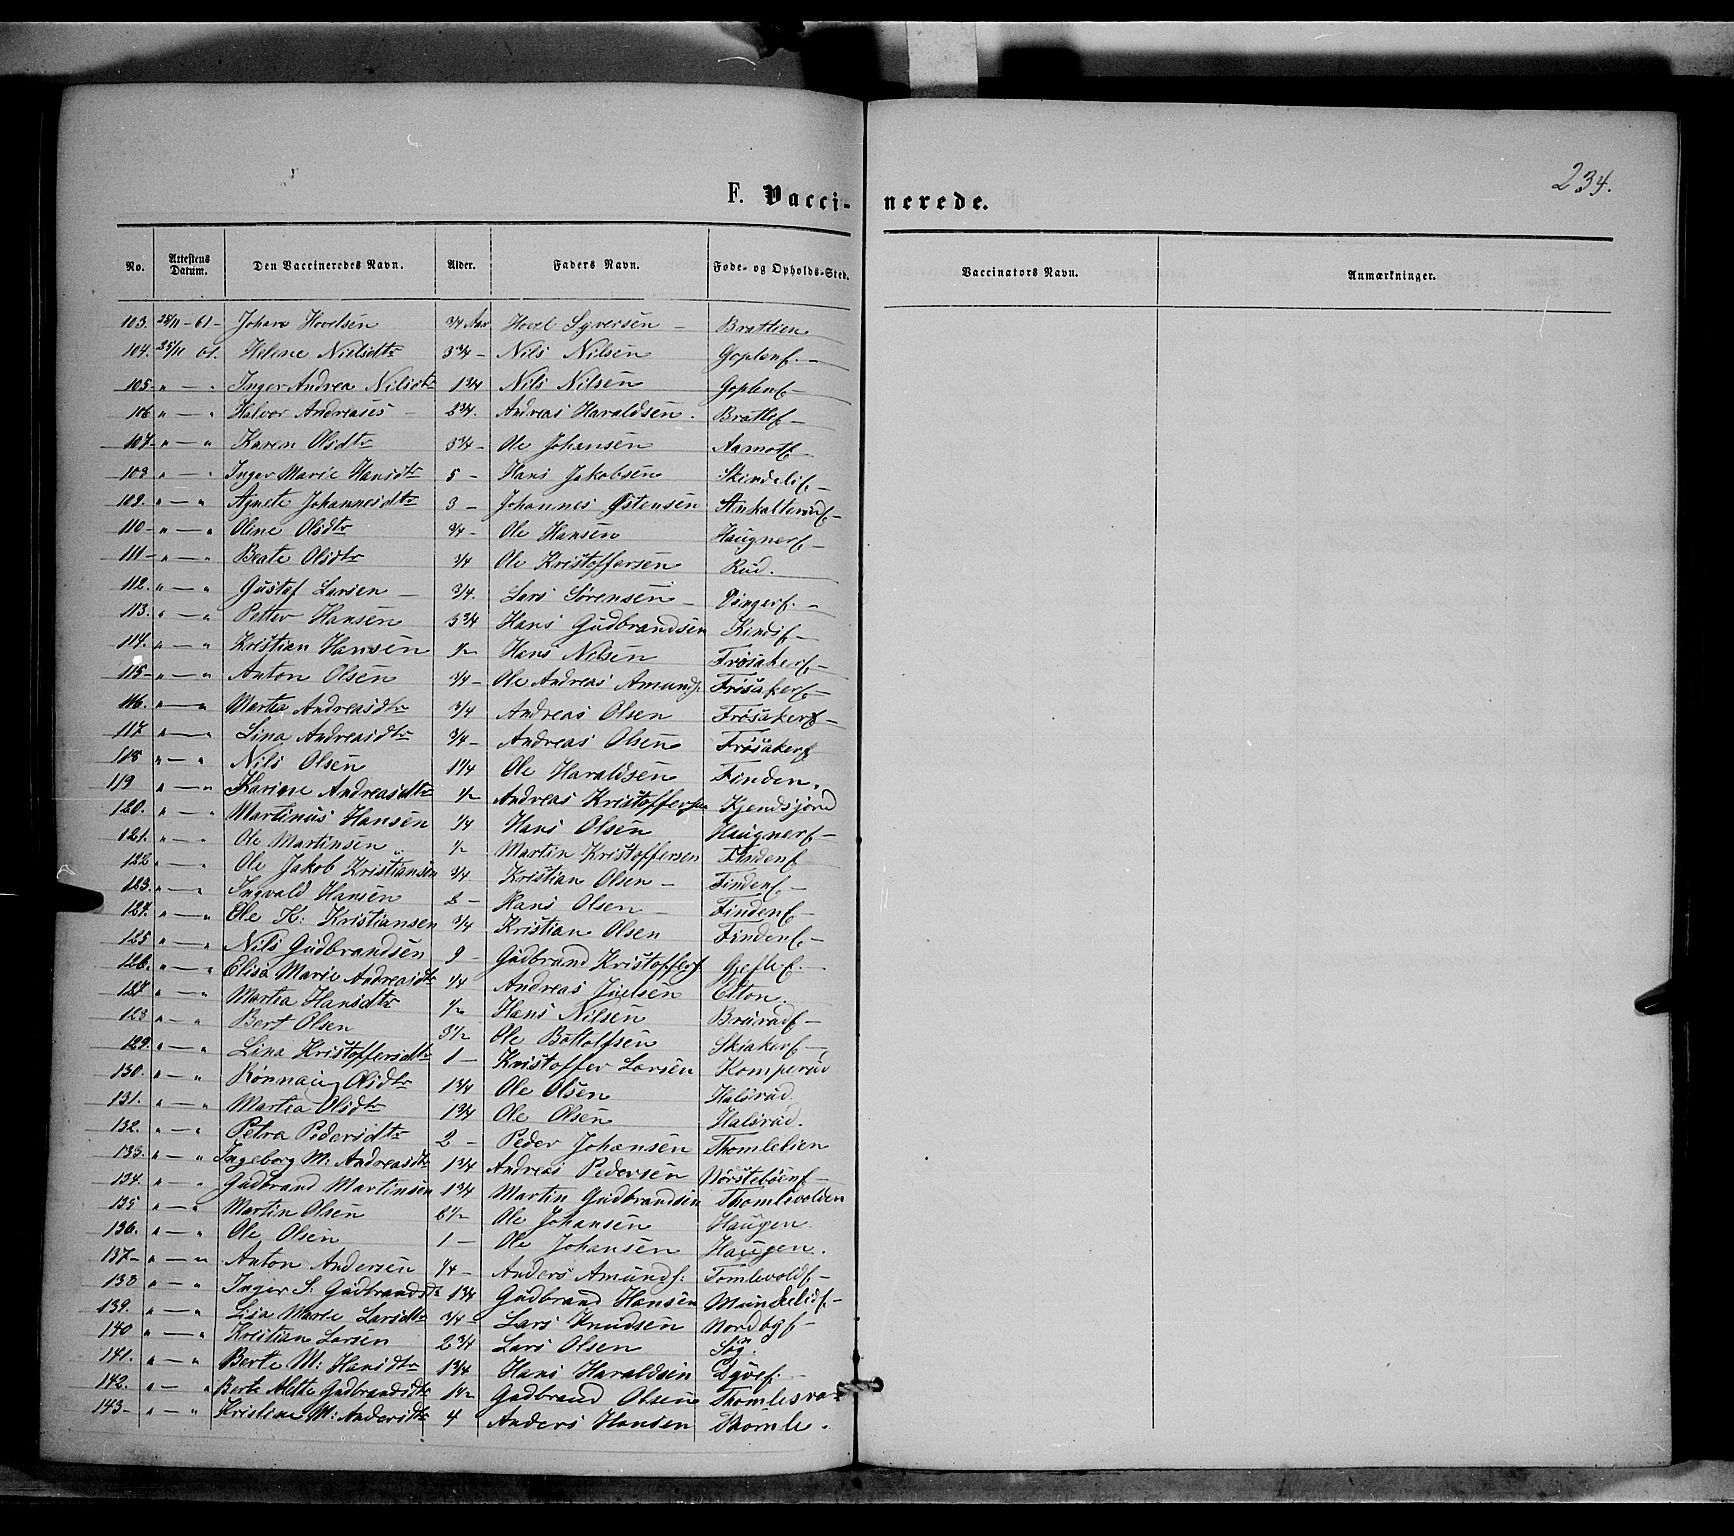 234.
F. Vacci- nerede.
No. Attestens Datum. Den Vaccineredes Navn. Alder. Faders Navn. Føde- og Opholds-Sted. Vaccinators Navn. Anmærkninger.
103. 28/11-61- Johans Hovelsen 3/4 Aar Hovel Syversen - Brattien
104. 25/11 61. Helene Nielsdtr 3 3/4 - Nils Nilsen Goplenf. -
105. " - " Inger Andrea Nilsdtr 1 3/4 Nils Nilsen Goplenf -
106 " - " Halvor Andreases - 2 3/4. Andreas Haraldsen. Bratlef -
107- " - " Karen Olsdtr 3 3/4 - Ole Johansen Aamotf -
108 " - " Inger Marie Hansdtr 5 - Hans Jakobsen Skindelif -
109. " - " Agnete Johannesdtr 3 - Johannes Østensen Anhalterudf -
110- " - " Oline Olsdtr 3/4 - Ole Hansen Haugnerf -
111- " - " Beate Olsdtr 3/4 Ole Kristoffersen Rud.
112. " - " Gustaf Larsen - 3/4. Lars Sørensen -
113. " - " Petter Hansen 5 3/4 Hans Gudbrandsen Kindif -
114. " - " Kristian Hansen 1/2 Hans Nilsen Frøsakerf -
115- " - " Anton Olsen 3/4 - Ole Andreas Amundf. Frøsakerf -
116. " - " Martea Andreasdtr 3/4 Andreas Olsen Frøsakerf -
117. " - " Lina Andreasdtr 3/4 - Andreas Olsen Frøsakerf
118 " - " Nils Olsen 1 1/4 Ole Haraldsen Finden.
119 " - " Karine Andreasdtr 1/2 Andreas Kristoffersen Kjendsjord
120. " - " Martinus Hansen 1/4 Hans Olsen Haugnerf -
121. " - " Ole Martinsen 1/2 Martin Kristoffersen Findenf
122 " - " Ole Jakob Kristiansen 3/4 Kristian Olsen - Findenf -
123. " - " Ingvald Hansen 2 - Hans Olsen - Findenf -
124. " - " Ole K: Kristiansen 3/4 Kristian Olsen Findenf -
125 " - " Nils Gudbrandsen 9 - Gudbrand Kristofferf Gjeflef. -
126. " - " Elisa Marie Andreasdtr 1/4 Andreas Juelsen Elton.
127. " - " Martea Hansdtr 1/2 Hans Nilsen Bruradf -
128 " - " Bert Olsen 3 1/2 Ole Bottolfsen Skiakerf -
129. " - " Lina Kristoffersdtr 1 - Kristoffer Larsen Komperud
130. " - " Rønnaug Olsdtr 1 3/4 Ole Olsen Halsrud.
131. " - " Martea Olsdtr 1 3/4 Ole Olsen Halsrud.
132. " - " Petra Pedersdtr 2 - Peder Johansen Thomlebien
133. " - " Ingeborg M: Andreasdtr 1 3/4 Andreas Pedersen Nørstebøenf -
134. " - " Gudbrand Martinsen 1 3/4 Martin Gudbrandsen Thomlevolden
135 " - " Martin Olsen 6 1/2 Ole Johansen Haugen.
136. " - " Ole Olsen 1 - Ole Johansen Haugen.
137- " - " Anton Andersen 1/4 - Anders Amundf: Tomlevoldf -
138 " - " Inger S. Gudbrandsdtr 1 3/4 Gudbrand Hansen Munkelidf -
139. " - " Lisa Marie Larsdtr 3/4 - Lars Knudsen Nordbgf -
140 " - " Kristian Larsen 2 3/4 Lars Olsen
141. " - " Berte M: Hansdtr 1 3/4 Hans Haraldsen Dyvef.
142. " - " Berte Mette Gudbrandsdtr 1 1/2 Gudbrand Olsen
143- " - " Kristine M: Andersdtr 4 Anders Hansen Thomle.